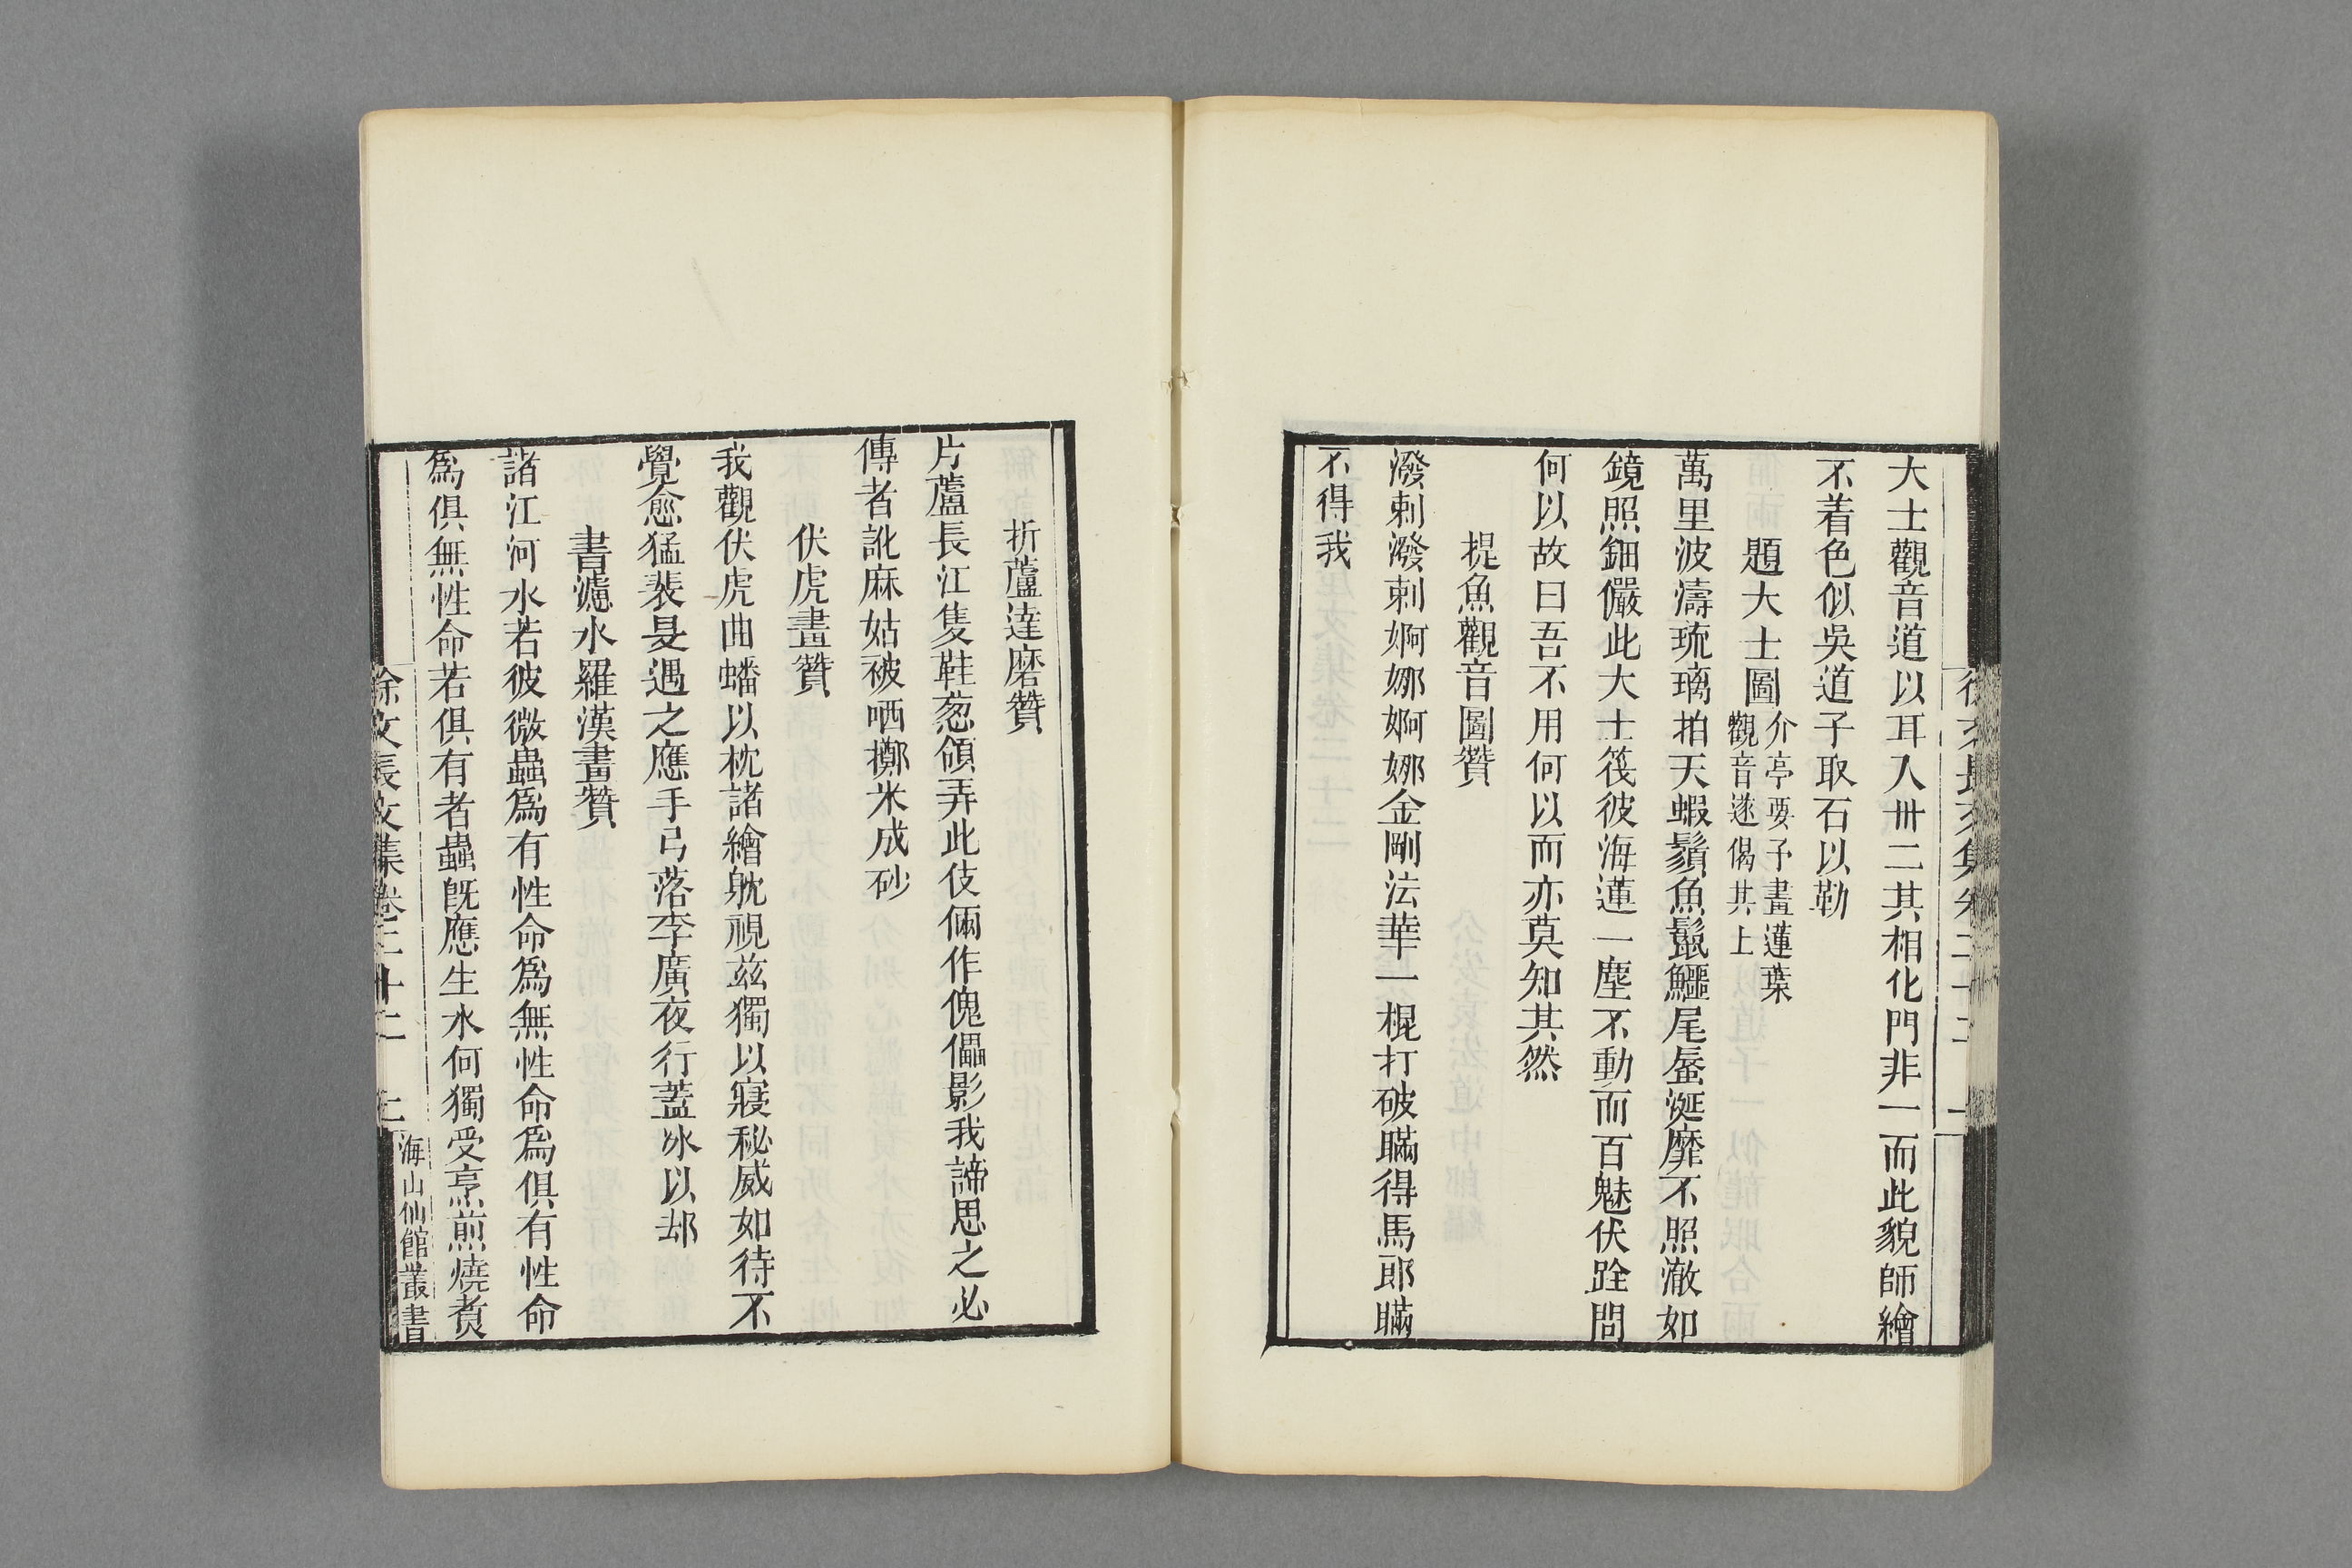 大士觀音道以耳入卅二其相化門非一而此貌師繪
不着色似吳道子取石以勒
題大士圖介亭要予畫蓮葉
觀音遂偈其上
萬里波濤琉璃拍天蝦鬚魚鬣鱷尾蜃涎靡不照澈如
鏡照鈿儼此大士筏彼海蓮一塵不動而百魅伏跧問
何以故曰吾不用何以而亦莫知其然
提魚觀音圖贊
潑剌潑剌婀娜婀娜金剛法華一棍打破瞞得馬郎瞞
不得我
折蘆達磨贊
片蘆長江隻鞋葱嶺弄此伎倆作傀儡影我諦思之必
傳者訛麻姑被哂擲米成砂
伏虎畫贊
我觀伏虎曲蟠以枕諸繪躭視茲獨以寢秘威如待不
覺愈猛裴旻遇之應手弓落李廣夜行蓋氷以却
書濾水羅漢畫贊
諸江河水若彼微蟲爲有性命爲無性命爲俱有性命
爲俱無性命若俱有者蟲旣應生水何獨受烹煎燒煑
徐文長文集卷二十二
二
海山仙館叢書